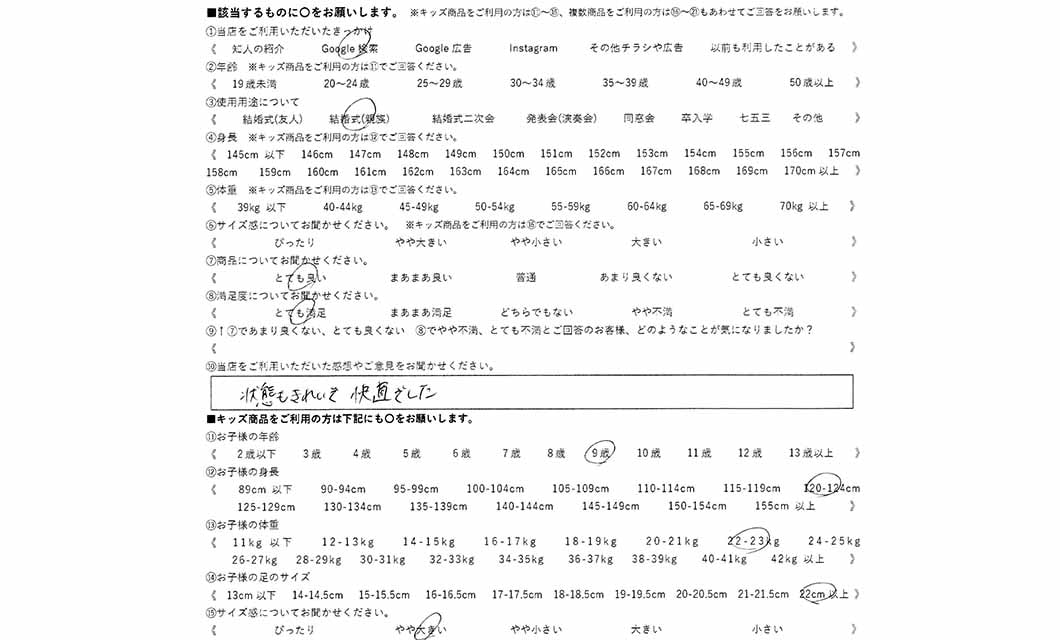 ■該当するものに〇をお願いします。 ※キッズ商品をご利用の方は⑪～⑮、複数商品をご利用の方は⑯～㉑もあわせてご回答をお願いします。
①当店をご利用いただいたきっかけ
《 知人の紹介 Google 検索 Google 広告 Instagram その他チラシや広告 以前も利用したことがある 》
②年齢 ※キッズ商品をご利用の方は⑪でご回答ください。
《 19歳未満 20～24歳 25～29歳 30～34歳 35～39歳 40～49歳 50歳以上 》
③使用用途について
《 結婚式(友人) 結婚式(親族) 結婚式二次会 発表会(演奏会) 同窓会 卒入学 七五三 その他 》
④身長 ※キッズ商品をご利用の方は⑫でご回答ください。
《 145cm 以下 146cm 147cm 148cm 149cm 150cm 151cm 152cm 153cm 154cm 155cm 156cm 157cm
158cm 159cm 160cm 161cm 162cm 163cm 164cm 165cm 166cm 167cm 168cm 169cm 170cm以上 》
⑤体重 ※キッズ商品をご利用の方は⑬でご回答ください。
《 39kg 以下 40-44kg 45-49kg 50-54kg 55-59kg 60-64kg 65-69kg 70kg 以上 》
⑥サイズ感についてお聞かせください。 ※キッズ商品をご利用の方は⑮でご回答ください。
《 ぴったり やや大きい やや小さい 大きい 小さい 》
⑦商品についてお聞かせください。
《 とても良い まあまあ良い 普通 あまり良くない とても良くない 》
⑧満足度についてお聞かせください。
《 とても満足 まあまあ満足 どちらでもない やや不満 とても不満 》
⑨↑⑦であまり良くない、とても良くない ⑧でやや不満、とても不満とご回答のお客様、どのようなことが気になりましたか？
《 》
⑩当店をご利用いただいた感想やご意見をお聞かせください。
状態もきれいで 快適でした
■キッズ商品をご利用の方は下記にも〇をお願いします。
⑪お子様の年齢
《 2歳以下 3歳 4歳 5歳 6歳 7歳 8歳 9歳 10歳 11歳 12歳 13歳以上 》
⑫お子様の身長
《 89cm 以下 90-94cm 95-99cm 100-104cm 105-109cm 110-114cm 115-119cm 120-124cm
125-129cm 130-134cm 135-139cm 140-144cm 145-149cm 150-154cm 155cm 以上 》
⑬お子様の体重
《 11kg 以下 12-13kg 14-15kg 16-17kg 18-19kg 20-21kg 22-23kg 24-25kg
26-27kg 28-29kg 30-31kg 32-33kg 34-35kg 36-37kg 38-39kg 40-41kg 42kg 以上 》
⑭お子様の足のサイズ
《 13cm 以下 14-14.5cm 15-15.5cm 16-16.5cm 17-17.5cm 18-18.5cm 19-19.5cm 20-20.5cm 21-21.5cm 22cm以上 》
⑮サイズ感についてお聞かせください。
《 ぴったり やや大きい やや小さい 大きい 小さい 》